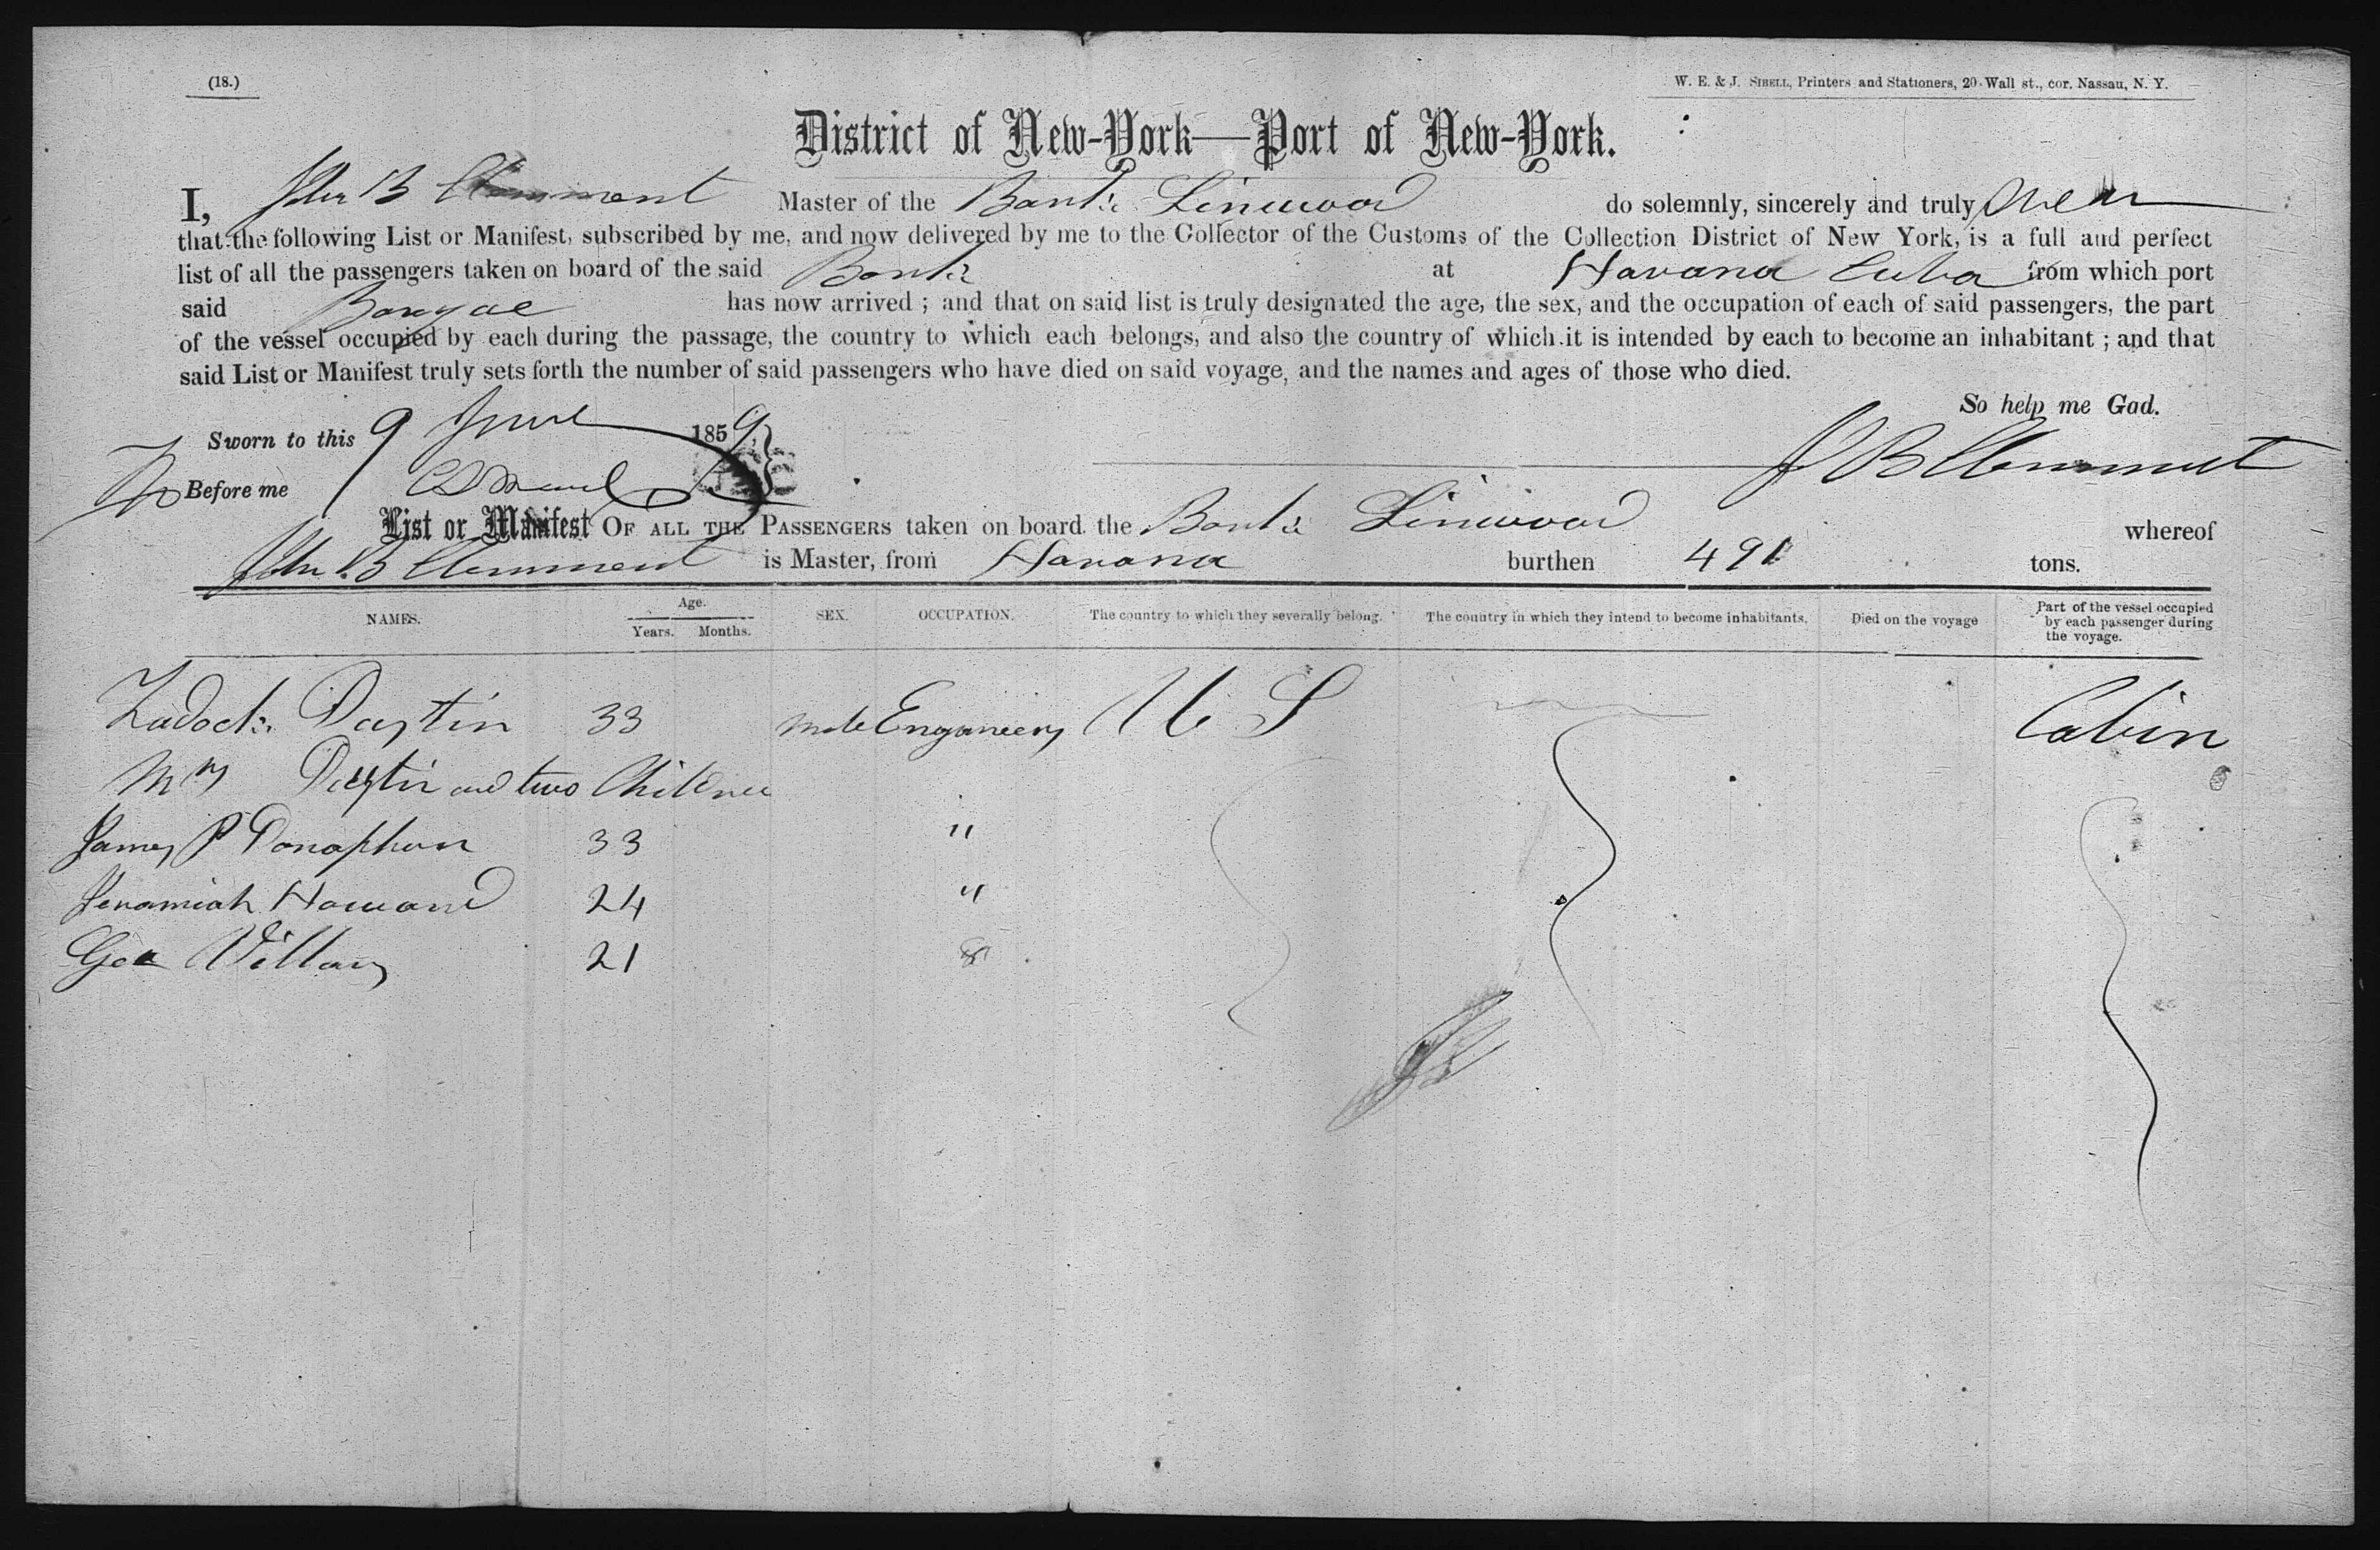 (18.)
W. E. & J. SIBELL, Printers and Stationers, 20 Wall st., cor. Nassau, N. Y.
District of New-York—Port of New-York.
I, John B Clemment Master of the Bark Linwood do solemnly, sincerely and truly Swear
that the following List or Manifest, subscribed by me, and now delivered by me to the Collector of the Customs of the Collection District of New York, is a full and perfect
list of all the passengers taken on board of the said Bark at Havana Cuba from which port
said Barque has now arrived ; and that on said list is truly designated the age, the sex, and the occupation of each of said passengers, the part
of the vessel occupied by each during the passage, the country to which each belongs, and also the country of which it is intended by each to become an inhabitant ; and that
said List or Manifest truly sets forth the number of said passengers who have died on said voyage, and the names and ages of those who died.
So help me God.
Sworn to this 9 June 1859,
J B Clemment
Before me
List or Manifest OF ALL THE PASSENGERS taken on board the Bark Linwood whereof
John B Clemment is Master, from Havana burthen 491 tons.
NAMES. Age. Years. Months. SEX. OCCUPATION. The country to which they severally belong. The country in which they intend to become inhabitants. Died on the voyage Part of the vessel occupied by each passenger during the voyage.
Zadock Dustin 33 Male Enganeers U S Cabin
Mrs Dustin and two Children
James P Donaphun 33 "
Jeramiah Howard 24 "
Geo 21